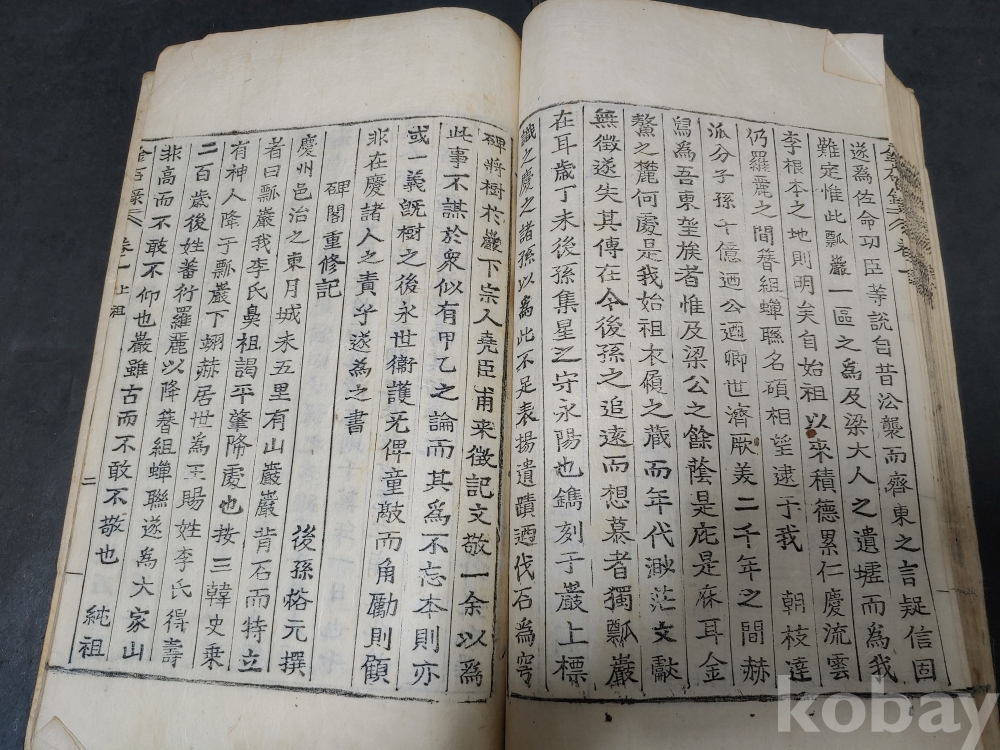 遂爲佐命功臣等說自昔訟襲而齊東之言疑信固
難定惟此瓢巖一區之爲及梁大人之遺墟而爲我
李根本之地則明矣自始祖以來積德累仁慶流雲
仍羅麗之間簪組蟬聯名碩相望逮于我 朝枝達
派分子孫千億迺公迺卿世濟厥美二千年之間赫
舃爲吾東望族者惟及梁公之餘蔭是庇是庥耳金
鰲之麓何處是我始祖衣履之藏而年代渺茫文獻
無徵遂失其傳在今後孫之追遠而想慕者獨瓢巖
在耳歲丁未後孫集星之守永陽也鐫刻于巖上標
識之慶之諸孫以爲此不足表揚遺蹟迺伐石爲穹
碑將樹於巖下宗人堯臣甫来徵記文敬一余以爲
此事不謀於衆似有甲乙之論而其爲不忘本則亦
或一義旣樹之後永世衛護旡俾童敲而角勵則顧
非在慶諸人之責乎遂爲之書
碑閣重修記
後孫格元撰
慶州邑治之東月城未五里有山巖巖背石而特立
者曰瓢巖我李氏鼻祖謁平肇降處也按三韓史乗
有神人降于瓢巖下翊赫居世爲王賜姓李氏得壽
二百歲後姓蕃衍羅麗以降簪組蟬聯遂爲大家山
非高而不敢不仰也巖雖古而不敢不敬也 純祖
金石錄 卷一 上祖 二
kobay